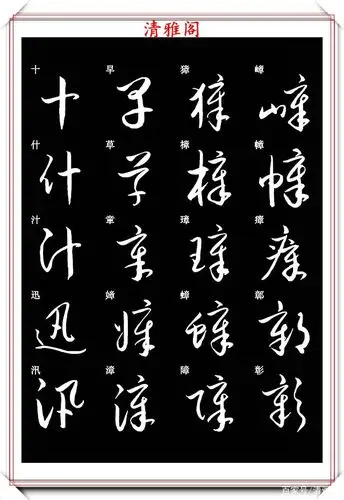 清雅阁
十 早 獐 嶂
十 早 獐 嶂
什 草 樟 幛
什 草 樟 幛
汁 章 璋 瘴
汁 章 璋 瘴
迅 嫜 蟑 鄣
迅 嫜 蟑 鄣
汛 漳 障 彰
汛 漳 障 彰
百家号/清